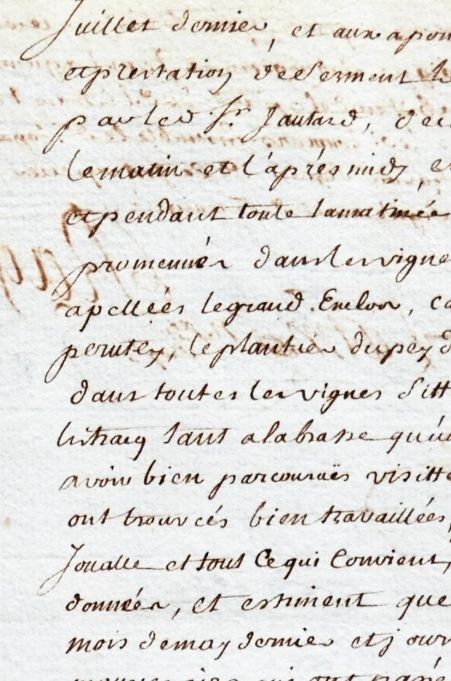 Juillet dernier, et aux apoin
et prestation de serment
par le d. Sr. Jautard, de
le matin et l'aprés midy, e
et pendant toute la matinée
promennés dans les vigne
apellées le grand Enclos, ca
le plantier du pey d
dans toutes les vignes sitt
tant a la basse qu'a
avoir bien parcourües visitté
ont trouvées bien travaillées,
Joualle et tout ce qui Convient,
données, et estiment que
mois de may dernier et jour
qui ont